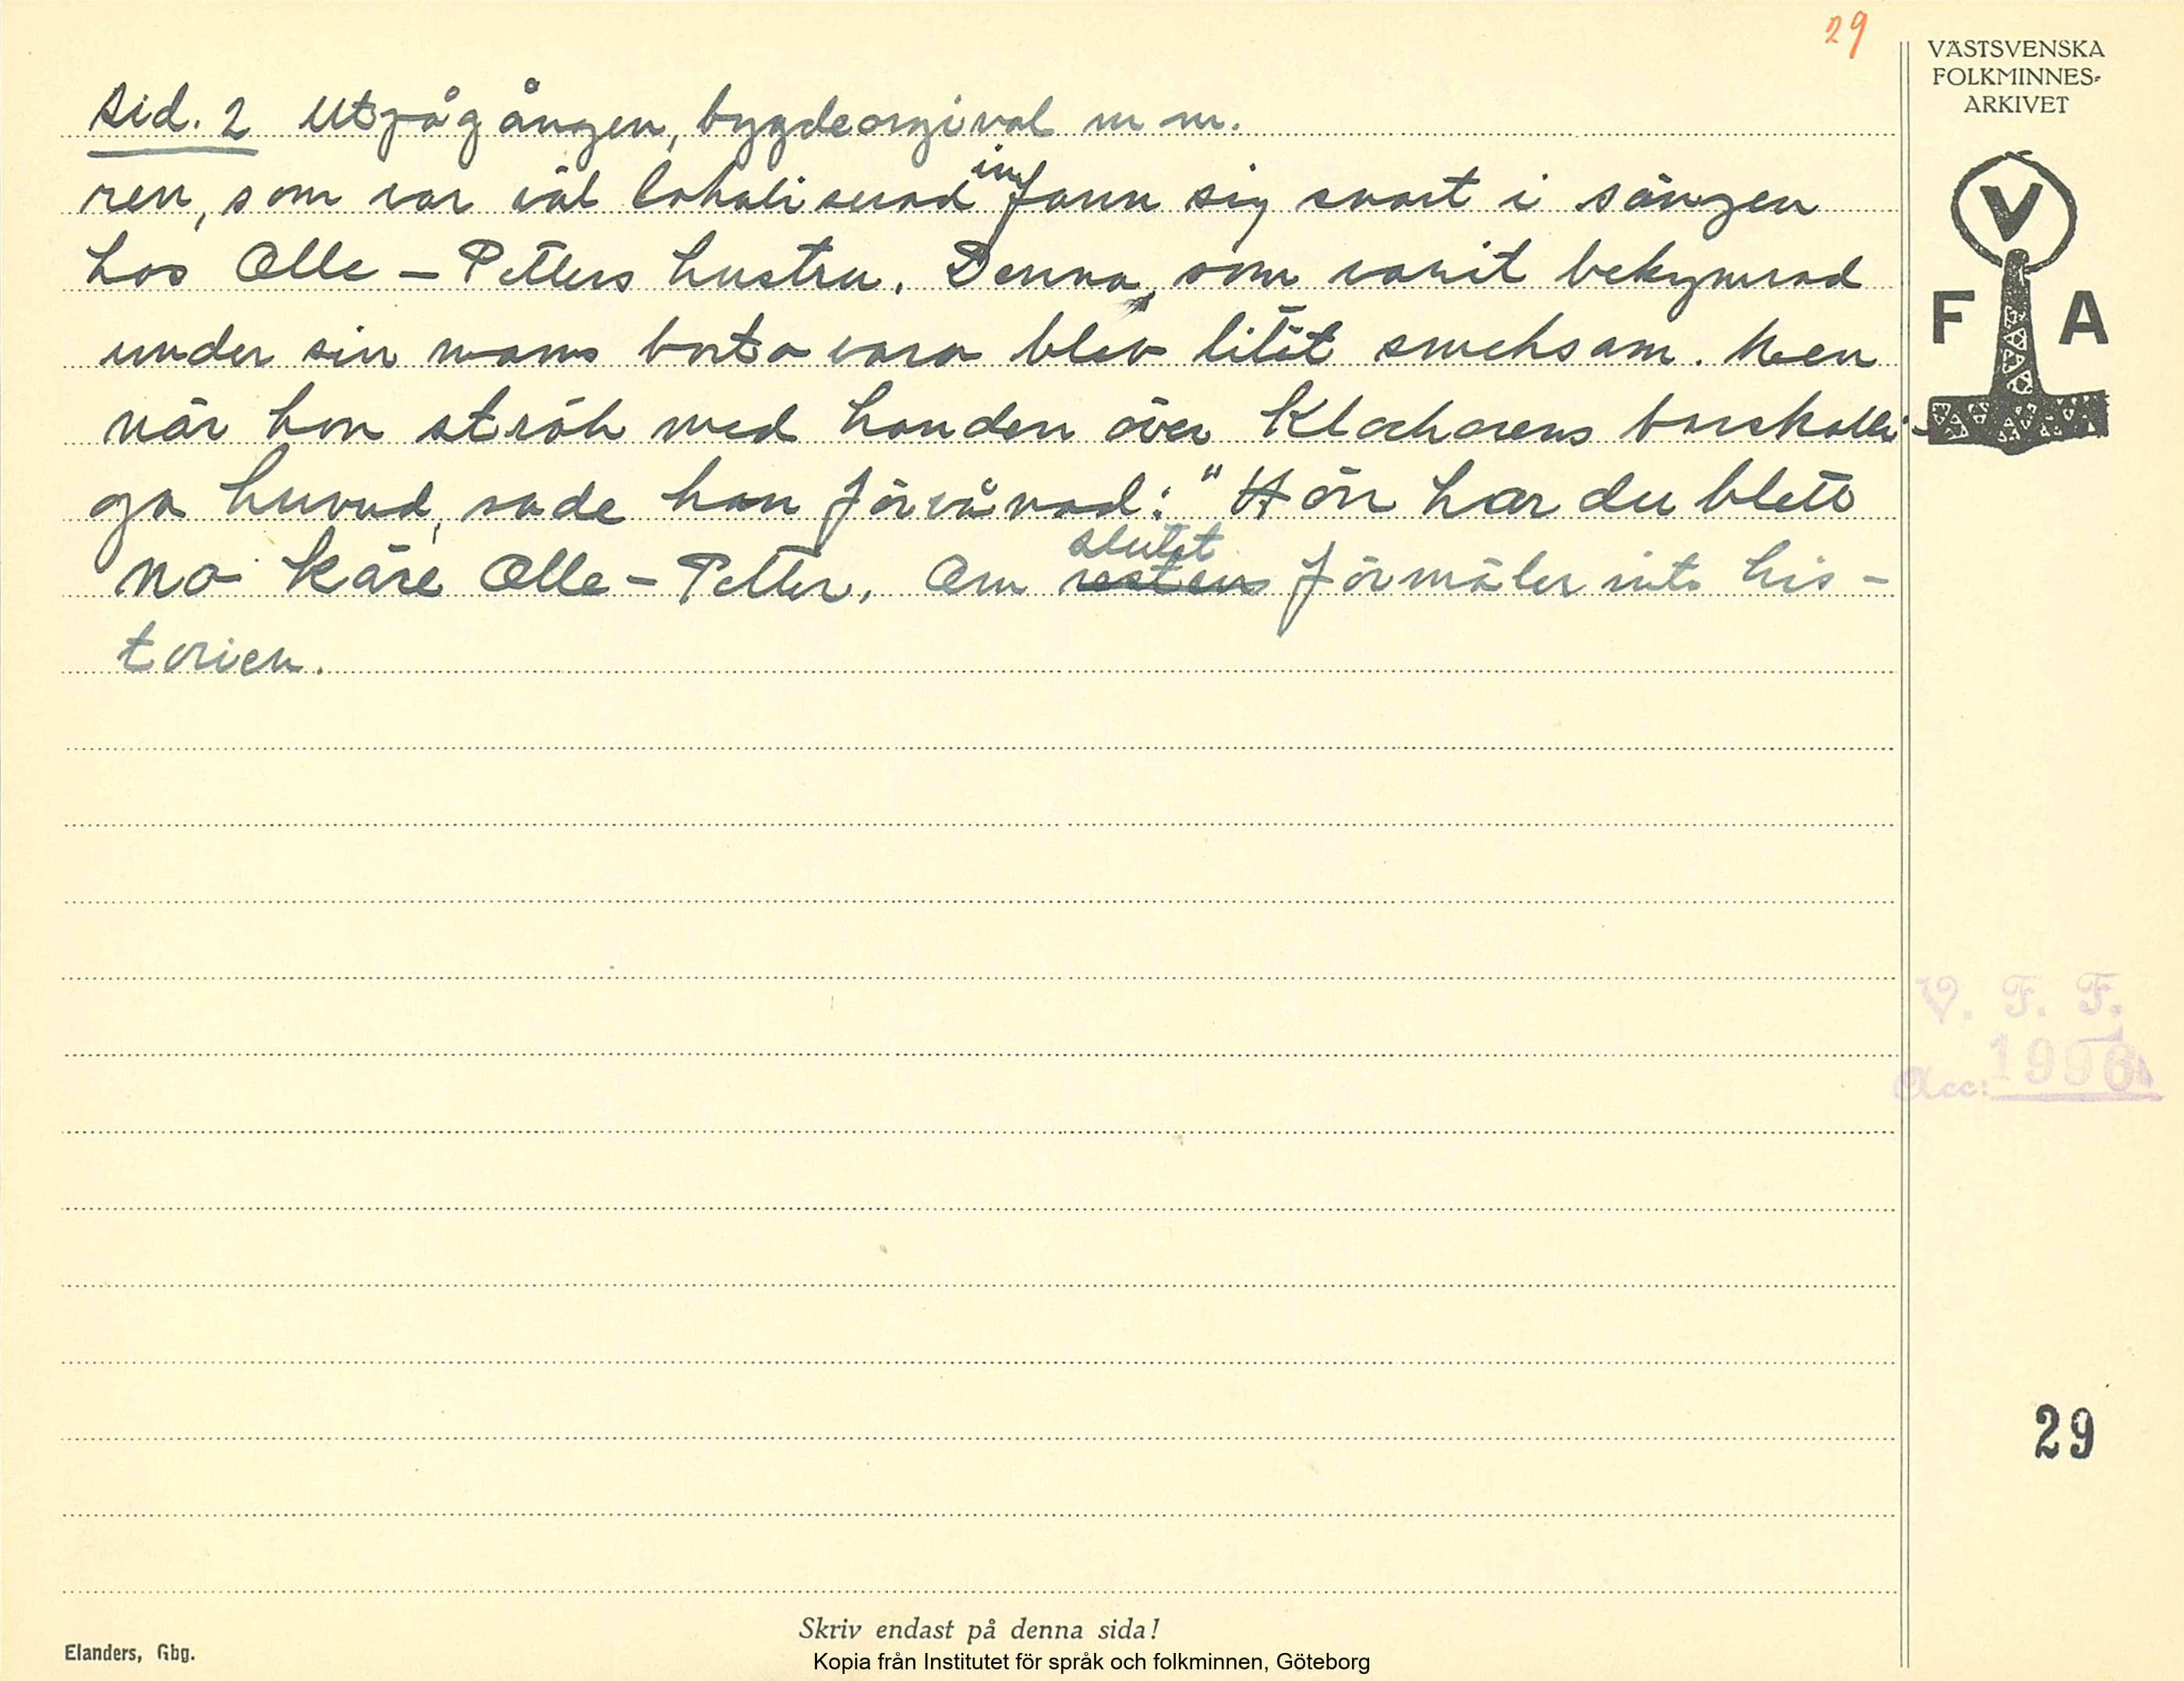 29
VÄSTSVENSKA
FOLKMINNES-
ARKIVET
V
F A
sid. 2 Utpågången, bygdeorginal m m.
ren, som var väl lokaliserad infann sig snart i sängen
hos Olle - Petters hustru. Denna, som varit bekymrad
under sin mans bortovaro blev litet smeksam. Men
när hon strök med handen över Klockarens barskalli-
ga huvud, sade hon förvånad: "Hör har du blett
no käre Olle - Petter. Om slutet förmäler inte his-
torien.
V. F. F.
Acc: 1996
29
Skriv endast på denna sida!
Elanders, Gbg.
Kopia från Institutet för språk och folkminnen, Göteborg